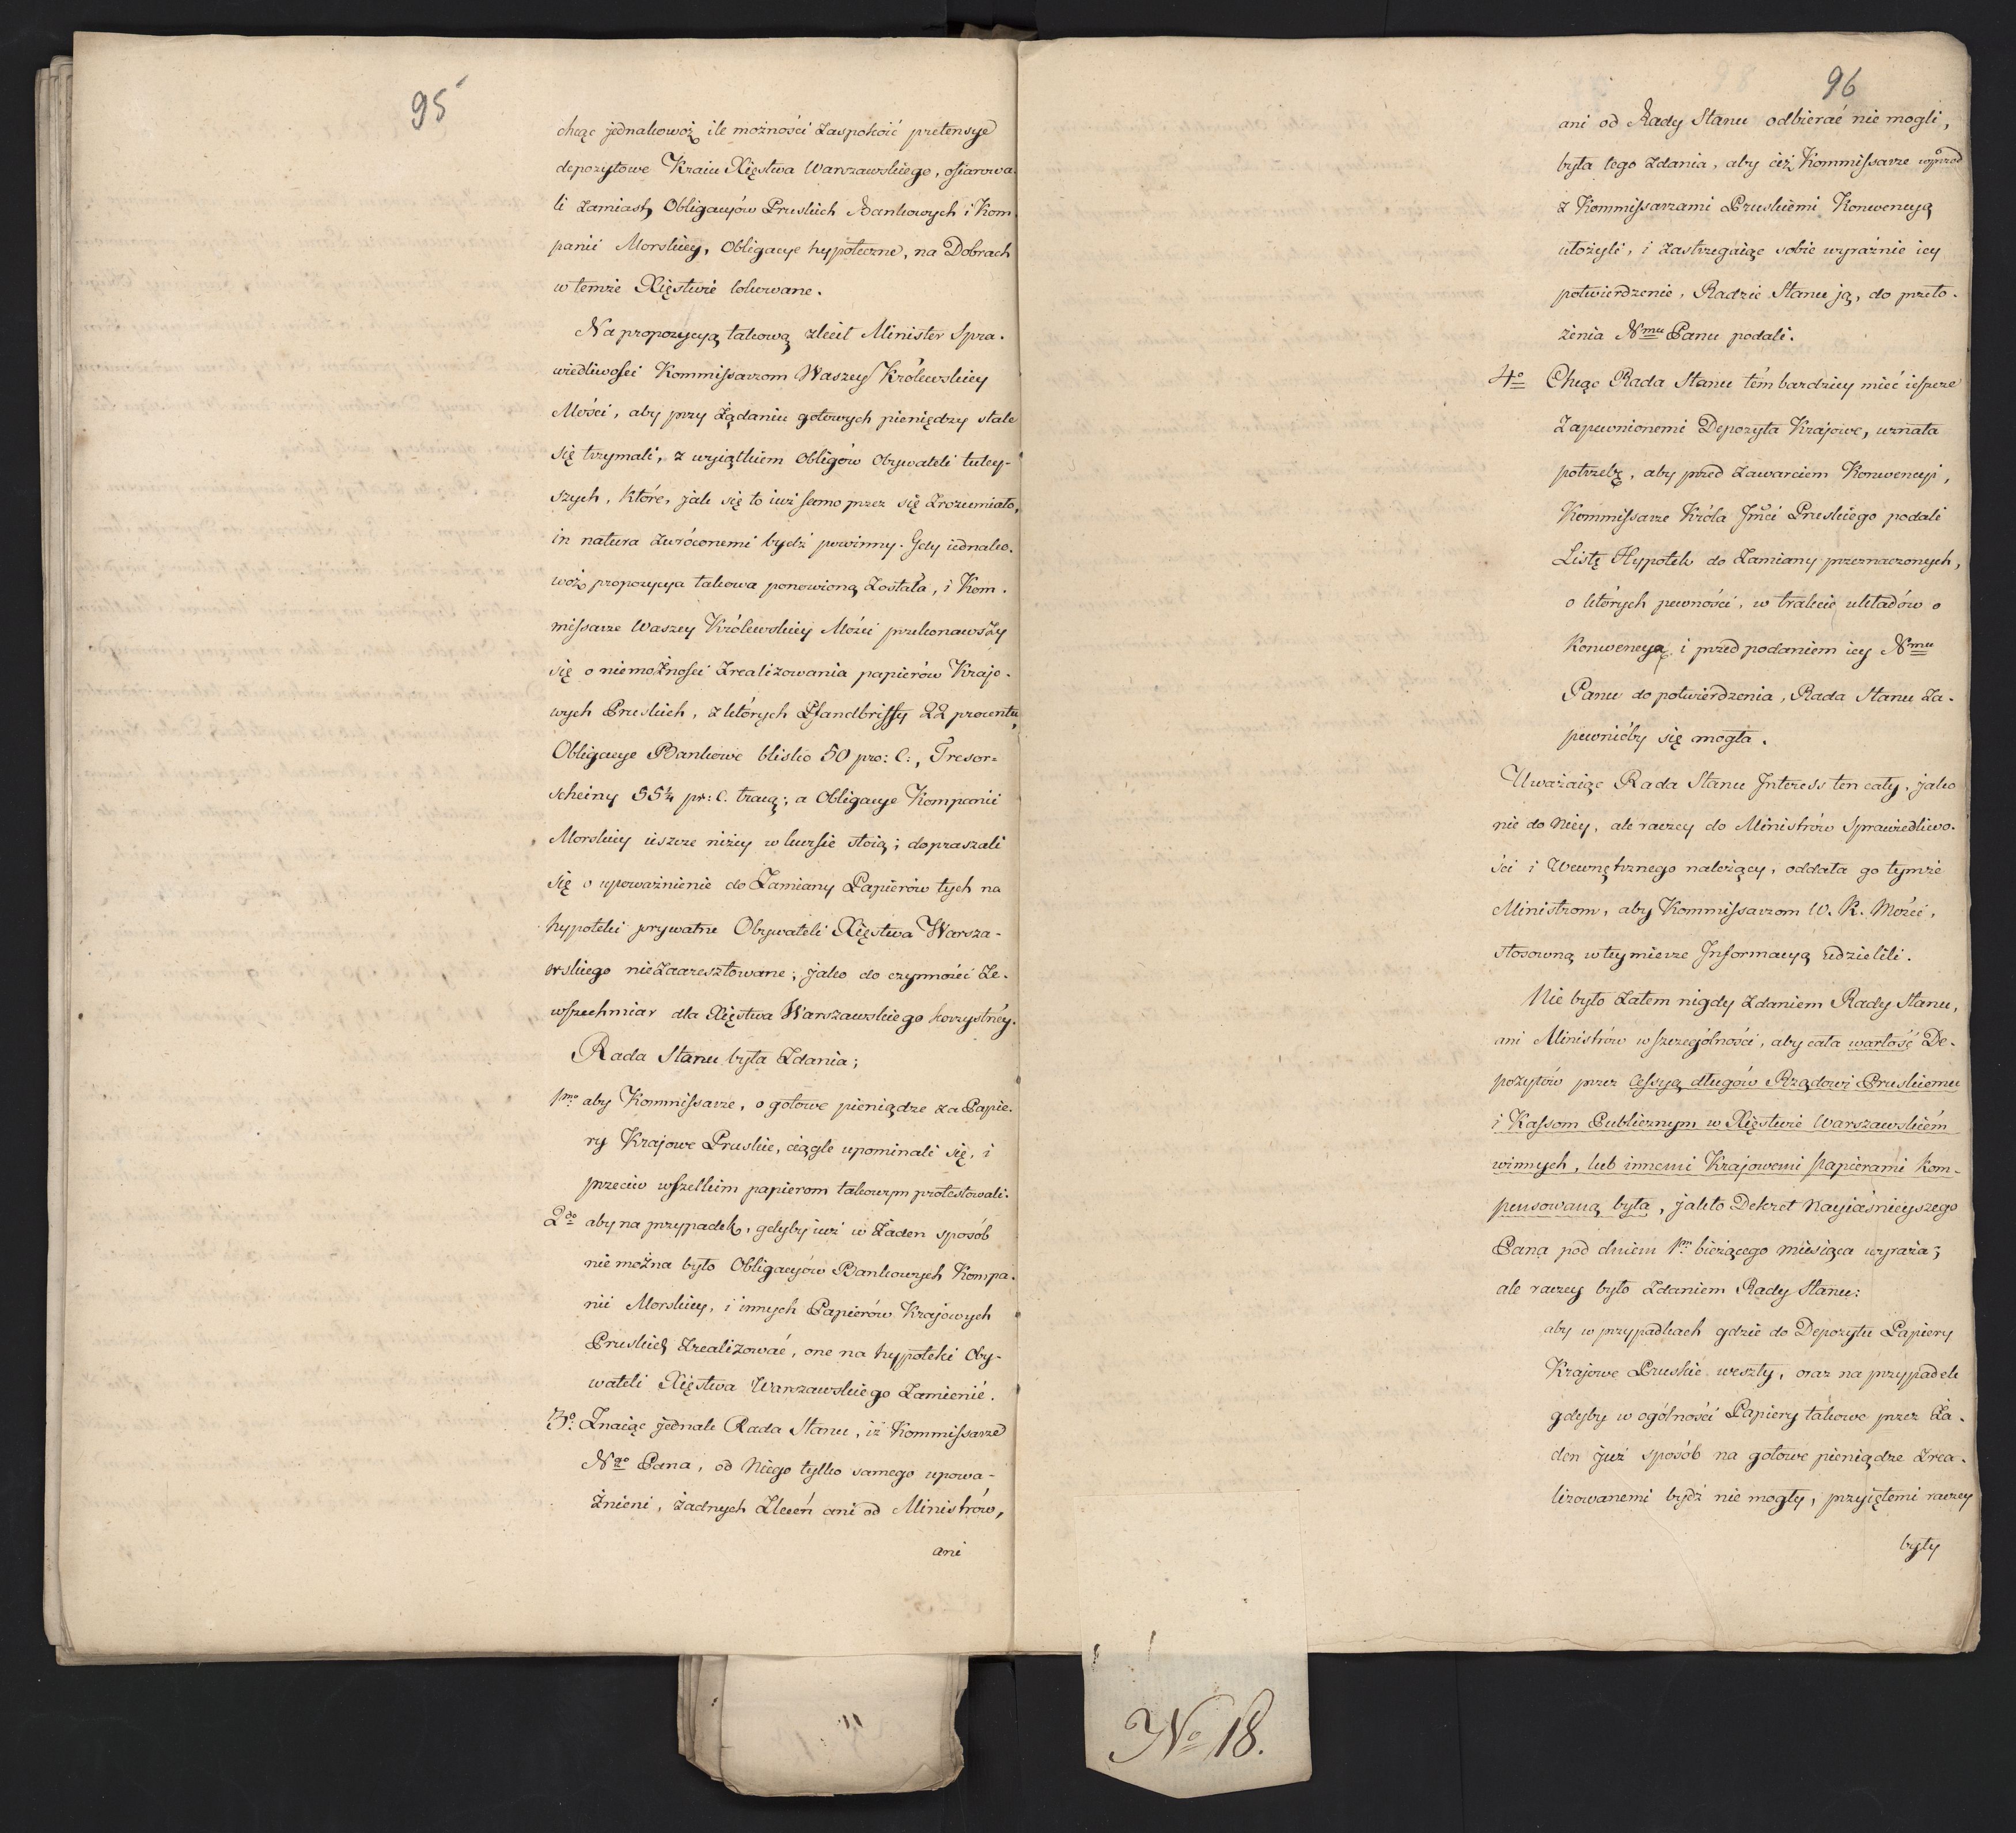 95
chcąc jednakowoż ile możności zaspokoić pretensye
depozytowe Kraiu Xięstwa Warszawskiego, ofiarowa-
li zamiast Obligacyów Pruskich Bankowych i Kom-
panii Morskiey, Obligacye hypoteczne, na Dobrach
w temże Xięstwie lokowane.
Na propozycyą takową zlecił Minister Spra-
wiedliwości Kommissarzom Waszey Królewskiey
Mości, aby przy żądaniu gotowych pieniędzy stale
się trzymali, z wyiątkiem Obligów Obywateli tutey-
szych, które, jak się to iuż samo przez się zrozumiało,
in natura zwróconemi bydź powinny. Gdy iednako-
woż propozycya takowa ponowioną została, i Kom-
missarze Waszey Królewskiey Mości przekonawszy
się o niemożności zrealizowania papierów Krajo-
wych Pruskich, z których Pfandbriffy 22 procentu,
Obligacye Bankowe blisko 50 pro: C:, Tresor=
scheiny 55¼ pr: C. tracą; a Obligacye Kompanii
Morskiey ieszcze niżey w kursie stoią; dopraszali
się o upoważnienie do Zamiany Papierów tych na
hypoteki prywatne Obywateli Xięstwa Warsza-
wskiego niezaaresztowane; jako do czynności ze-
wszechmiar dla Xięstwa Warszawskiego korzystnéy.
Rada Stanu była Zdania;
1mo aby Kommissarze, o gotowe pieniądze za Papie-
ry Krajowe Pruskie, ciągle upominali się, i
przeciw wszelkim papierom takowym protestowali.
2do aby na przypadek, gdyby iuż w żaden sposób
nie można było Obligacyów Bankowych Kompa-
nii Morskiey, i innych Papierów Krajowych
Pruskich zrealizować, one na hypoteki Oby-
wateli Xięstwa Warszawskiego Zamienić.
3o. Znaiąc jednak Rada Stanu, iż Kommissarze
Ngo Pana, od Niego tylko samego upowa-
żnieni, żadnych Zleceń ani od Ministrów,
ani
96
ani od Rady Stanu odbierać nie mogli,
była tego zdania, aby ciż Kommissarze wprzód
z Kommissarzami Pruskiemi Konwencyą
ułożyli, i zastrzegaiąc sobie wyraźnie iey
potwierdzenie, Radzie Stanu ją, do przeło-
żenia Nmu Panu podali.
4o Chcąc Rada Stanu tém bardziey mieć ieszcze
Zapewnionemi Depozyta Krajowe, uznała
potrzebę, aby przed zawarciem Konwencyi,
Kommissarze Króla Jmci Pruskiego podali
Listę Hypotek do Zamiany przeznaczonych,
o których pewności, w trakcie układów o
Konwencyą i przed podaniem iey Nmu
Panu do potwierdzenia, Rada Stanu Za-
pewnićby się mogła.
Uważaiąc Rada Stanu Interess ten cały, jako
nie do Niey, ale raczey do Ministrów Sprawiedliwo-
ści i Wewnętrznego należący, oddała go tymże
Ministrom, aby Kommissarzom W. K. Mości,
stosowną w tey mierze Informacyą udzielili.
Nie było zatem nigdy zdaniem Rady Stanu,
ani Ministrów w szczególności, aby cała wartość De-
pozytów przez cessyą długów Rządowi Pruskiemu
i Kassom Publicznym w Xięstwie Warszawskiém
winnych, lub innemi Krajowemi papierami kom-
pensowaną była, jakto Dekret Nayiaśnieyszego
Pana pod dniem 1m bieżącego miesiąca wyraża;
ale raczey było Zdaniem Rady Stanu:
aby w przypadkach gdzie do Depozytu Papiery
Krajowe Pruskie weszły, oraz na przypadek
gdyby w ogólności Papiery takowe przez ża-
den już sposób na gotowe pieniądze zrea-
lizowanemi bydź nie mogły, przyiętemi raczey
były
No 18.